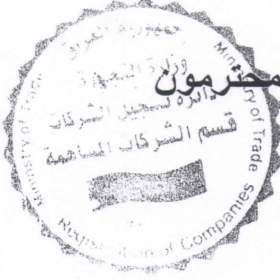 محترمون
جمهورية العراق
وزارة التجارة
دائرة تسجيل الشركات
قسم الشركات المساهمة
Ministry of Trade
Ministry of Trade
Registration of Companies